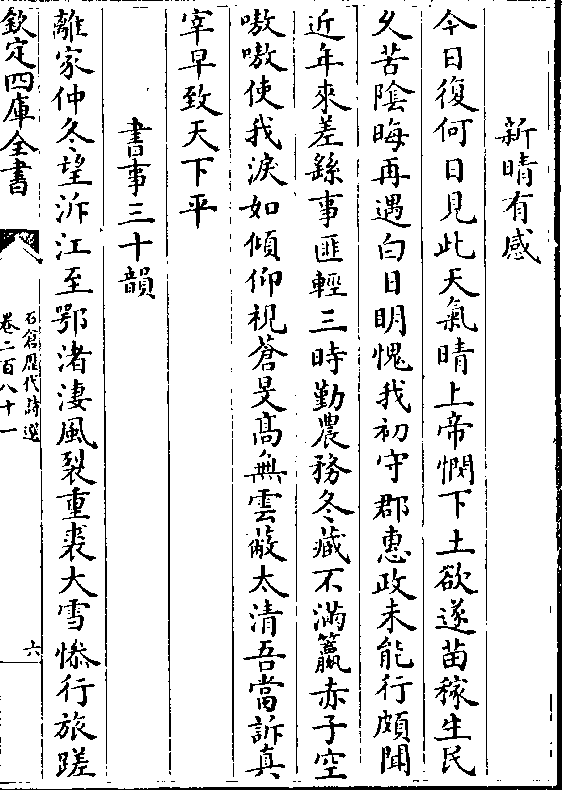 新晴有感
今日復何日見此天氣晴上帝憫下土欲遂苗稼生民
久苦陰晦再遇白日明愧我初守郡惠政未能行頗聞
近年來差繇事匪輕三時勤農務冬藏不滿籯赤子空
嗷嗷使我淚如傾仰視蒼旻髙無雲蔽太清吾當訴真
宰早致天下平
書事三十韻
離家仲冬望泝江至鄂渚淒風裂重裘大雪慘行旅蹉
欽定四庫全書
石倉歴代詩選
卷二百八十一
六